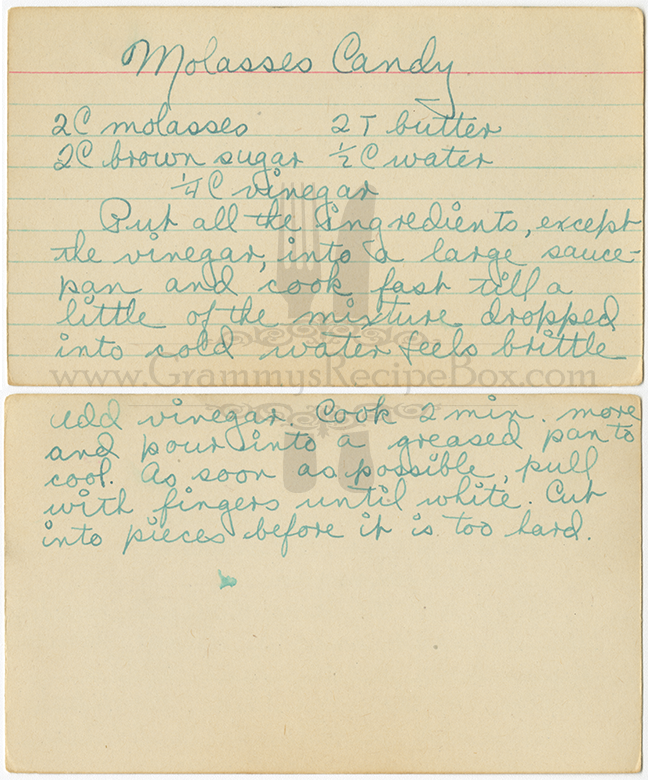 Molasses Candy
2C molasses 2T butter
2C brown sugar ½C water
¼C vinegar
Put all the ingredients, except
the vinegar, into a large sauce-
pan and cook fast till a
little of the mixture dropped
into cold water feels brittle
www.GrammysRecipeBox.com
add vinegar. Cook 2 min. more
and pour into a greased pan to
cool. As soon as possible, pull
with fingers until white. Cut
into pieces before it is too hard.